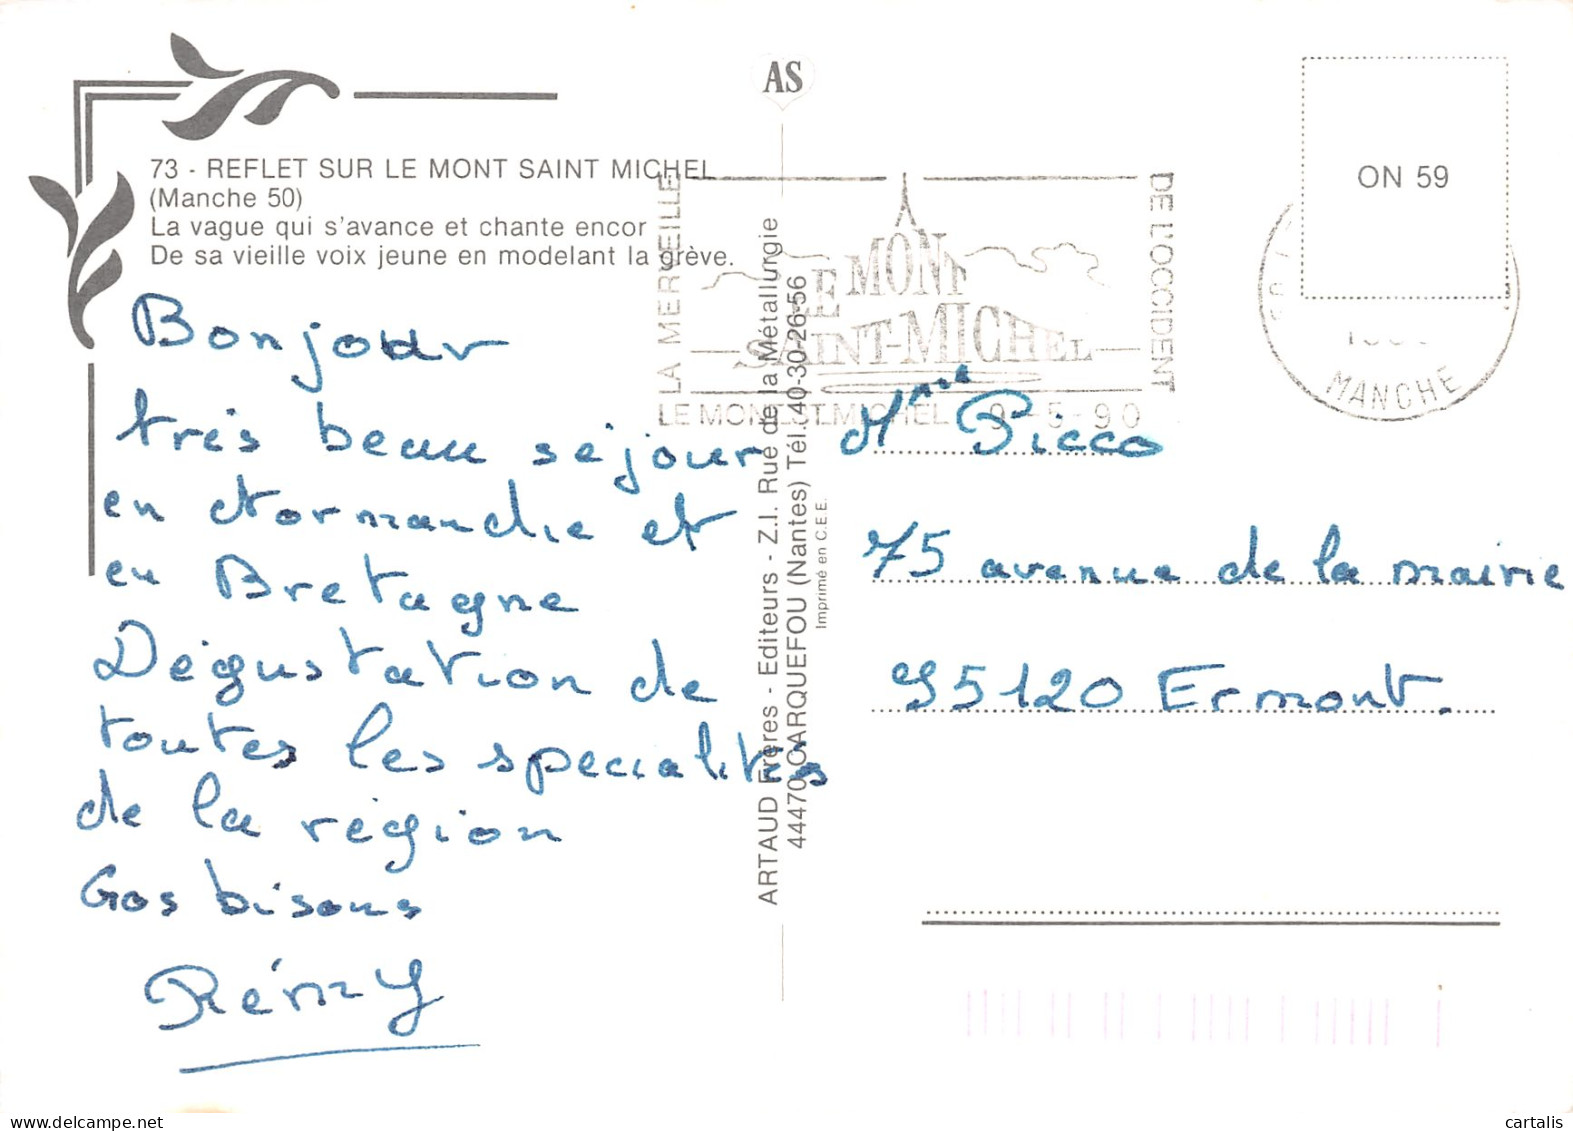 AS
73 - REFLET SUR LE MONT SAINT MICHEL
(Manche 50)
La vague qui s'avance et chante encor
De sa vieille voix jeune en modelant la grève.
Bonjour
très beau séjour
en Normandie et
en Bretagne
Dégustation de
toutes les specialités
de la région
Gos bisous
Rémy
ARTAUD Frères - Editeurs - Z.I. Rue de la Métallurgie
44470 CARQUEFOU (Nantes) Tél. 40-30-26-56
Imprimé en C.E.E.
LA MERVEILLE
LE MONT
SAINT-MICHEL
DE L'OCCIDENT
LE MONT ST MICHEL 9-5-90
ON 59
MANCHE
Mme Picco
75 avenue de la mairie
95120 Ermont.
cartalis